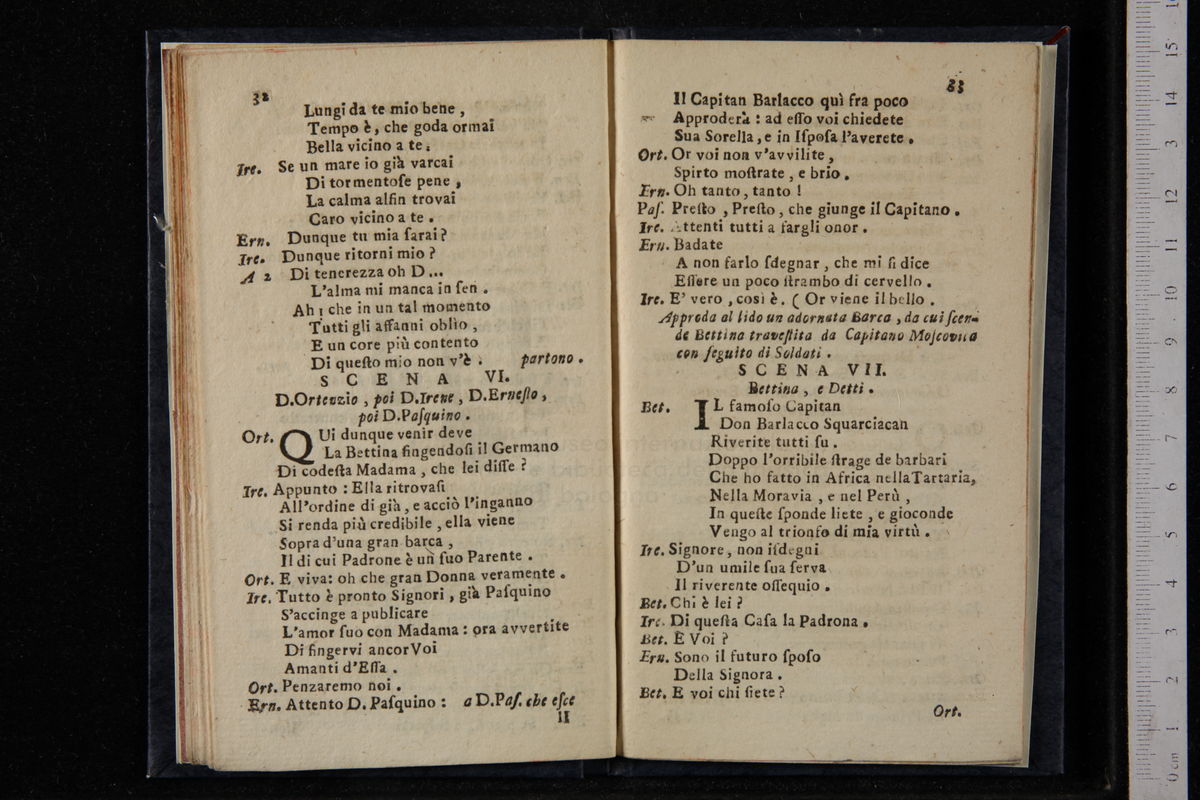 32
Lungi da te mio bene ,
Tempo è, che goda ormai
Bella vicino a te.
Ire. Se un mare io già varcai
Di tormentoſe pene ,
La calma alfin trovai
Caro vicino a te .
Ern. Dunque tu mia ſarai?
Ire. Dunque ritorni mio ?
A 2 Di tenerezza oh D...
L'alma mi manca in ſen .
Ah ; che in un tal momento
Tutti gli affanni oblìo ,
E un core più contento
Di queſto mio non v'è . partono .
SCENA VI.
D.Ortenzio , poi D.Irene , D.Erneſto,
poi D.Paſquino .
Ort. QUi dunque venir deve
La Bettina fingendoſi il Germano
Di codeſta Madama , che lei diſſe ?
Ire. Appunto : Ella ritrovaſi
All'ordine di già , e acciò l'inganno
Si renda più credibile , ella viene
Sopra d'una gran barca ,
Il di cui Padrone è un ſuo Parente .
Ort. E viva: oh che gran Donna veramente .
Ire. Tutto è pronto Signori , già Paſquino
S'accinge a publicare
L'amor ſuo con Madama : ora avvertite
Di fingervi ancor Voi
Amanti d'Eſſa .
Ort. Penzaremo noi .
Ern. Attento D. Paſquino : a D.Paſ. che eſce
Il
33
Il Capitan Barlacco quì fra poco
Approderà : ad eſſo voi chiedete
Sua Sorella , e in Iſpoſa l'averete .
Ort. Or voi non v'avvilite ,
Spirto moſtrate , e brio .
Ern. Oh tanto , tanto !
Paſ. Preſto , Preſto , che giunge il Capitano .
Ire. Attenti tutti a fargli onor .
Ern. Badate
A non farlo ſdegnar , che mi ſi dice
Eſſere un poco ſtrambo di cervello .
Ire. E' vero , così è . ( Or viene il bello .
Approda al lido un adornata Barca , da cui ſcen-
de Bettina traveſtita da Capitano Moſcovita
con ſeguito di Soldati .
SCENA VII.
Bettina , e Detti .
Bet. IL famoſo Capitan
Don Barlacco Squarciacan
Riverite tutti ſu .
Doppo l'orribile ſtrage de barbari
Che ho fatto in Africa nella Tartaria,
Nella Moravia , e nel Perù ,
In queſte ſponde liete , e gioconde
Vengo al trionfo di mia virtù .
Ire. Signore , non iſdegni
D'un umile ſua ſerva
Il riverente oſſequio .
Bet. Chi è lei ?
Ire. Di queſta Caſa la Padrona .
Bet. E Voi ?
Ern. Sono il futuro ſpoſo
Della Signora .
Bet. E voi chi ſiete ?
Ort.